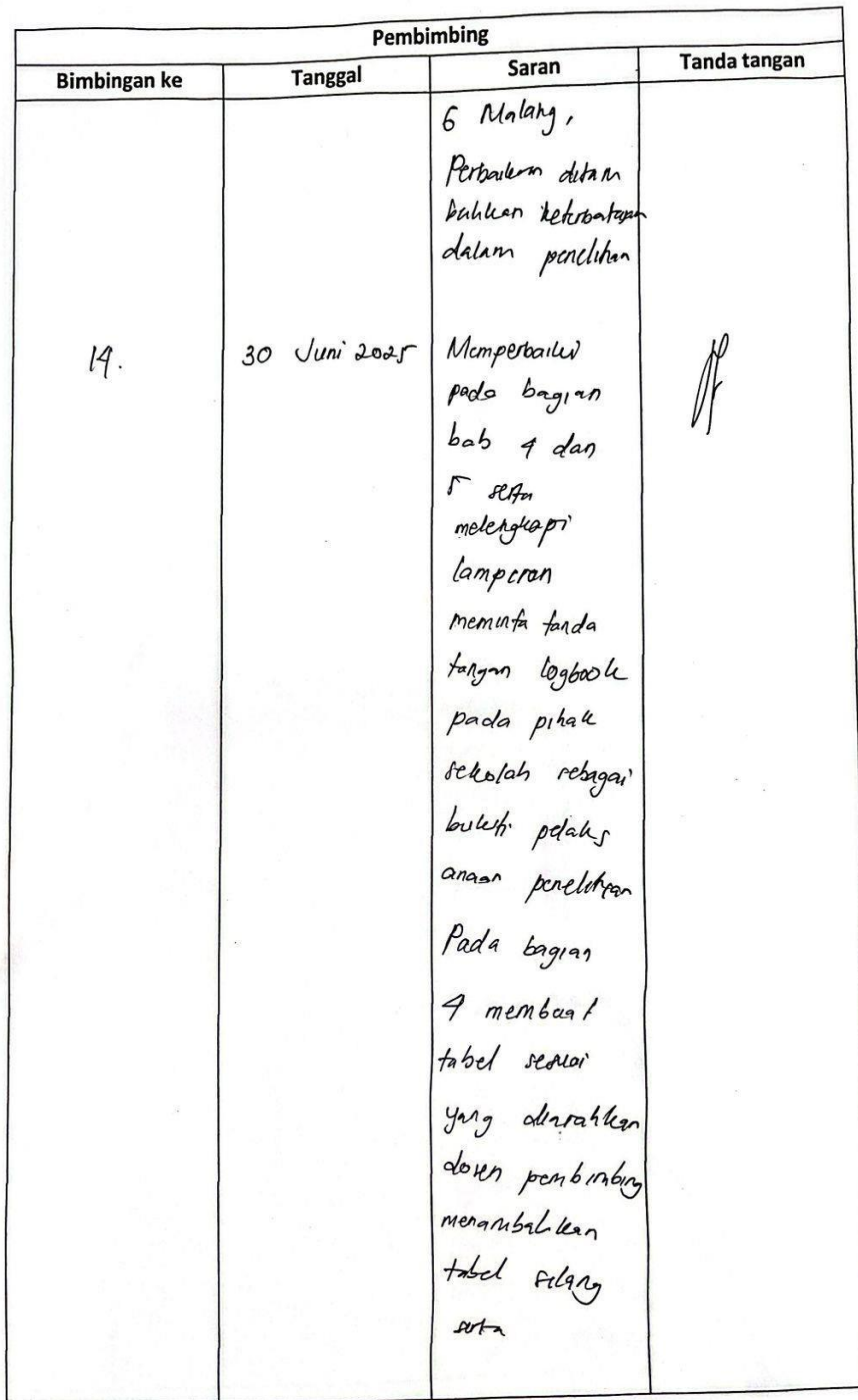 Pembimbing
Bimbingan ke Tanggal Saran Tanda tangan
6 Malang,
Perbaikan ditam
bahkan keterbatasan
dalam penelitian
14. 30 Juni 2025 Memperbaiki
pada bagian
bab 4 dan
5 serta
melengkapi
lampiran
meminta tanda
tangan logbook
pada pihak
sekolah sebagai
bukti pelaks
anaan penelitian
Pada bagian
4 membuat
tabel sesuai
yang diarahkan
dosen pembimbing
menambahkan
tabel silang
serta